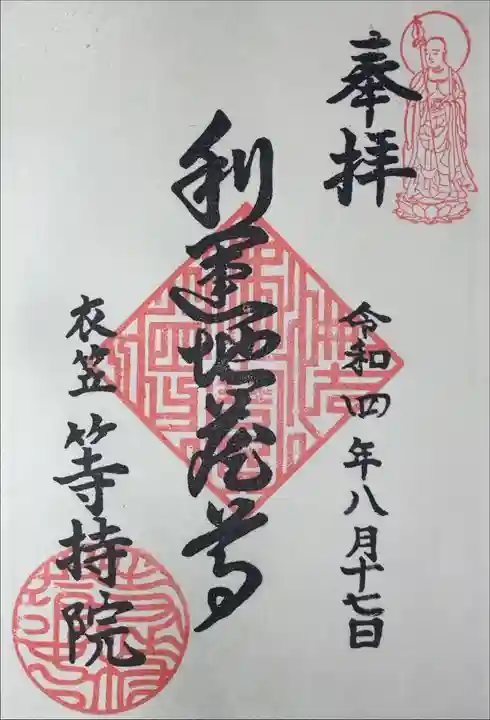 奉拝
令和四年八月十七日
利運地蔵尊
衣笠 等持院